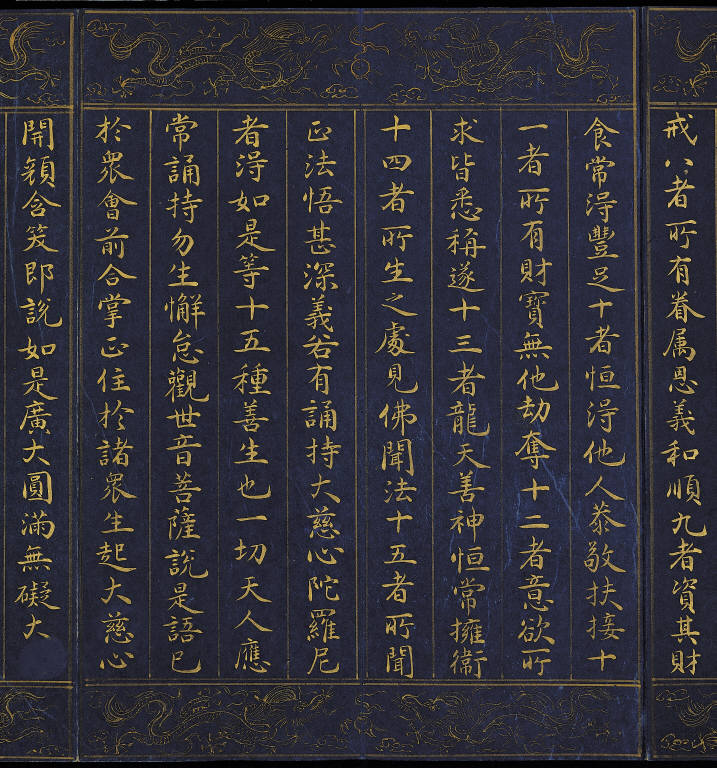 戒八者所有眷属恩義和順九者資其財
食常得豐足十者恒得他人恭敬扶接十
一者所有財寶無他劫奪十二者意欲所
求皆悉稱遂十三者龍天善神恒常擁衞
十四者所生之處見佛聞法十五者所聞
正法悟甚深義若有誦持大慈心陀羅尼
者得如是等十五種善生也一切天人應
常誦持勿生懈怠觀世音菩薩說是語已
於眾會前合掌正住於諸眾生起大慈心
開顏含笑即說如是廣大圓滿無礙大